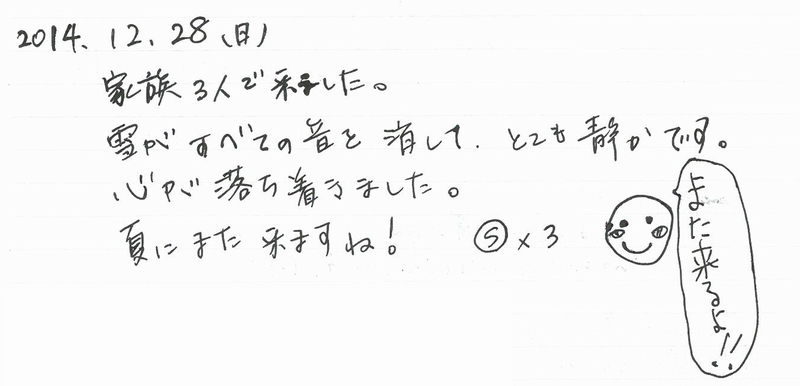 2014. 12. 28 (日)
家族3人で来ました。
雪がすべての音を消して、とても静かです。
心が落ち着きました。
夏にまた来ますね！ Ⓢ×3
また来るよ!!